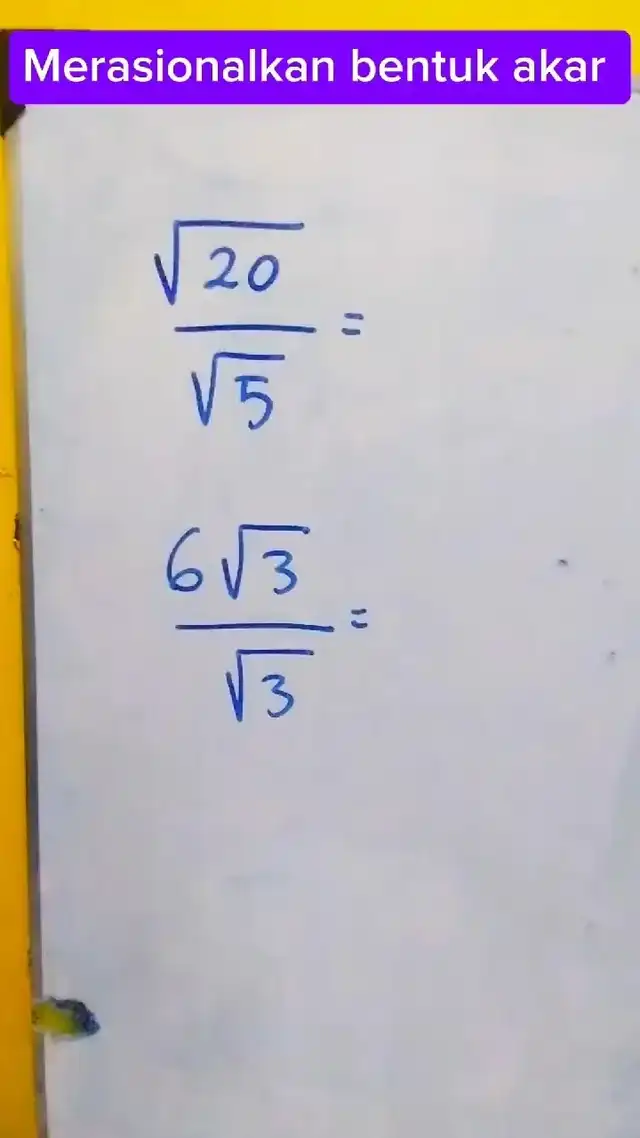 Merasionalkan bentuk akar
√20
/ √5 =
6√3
/ √3 =